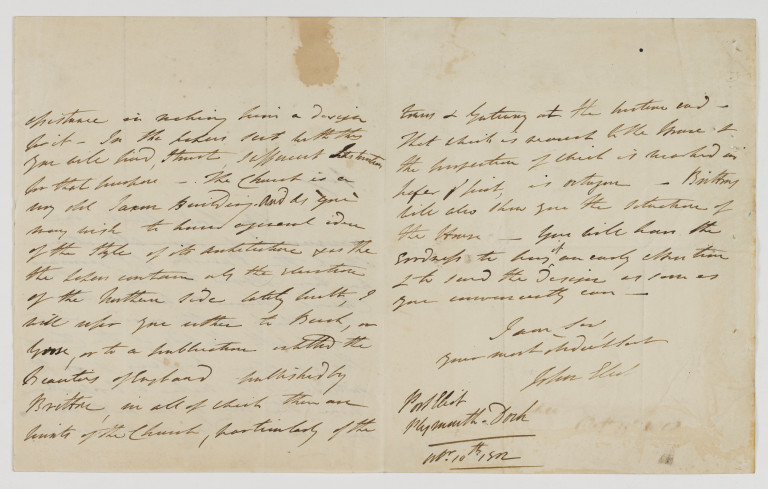 assistance in making him a design
for it - In the papers sent with this
you will find, I trust, sufficient Instructions
for that purpose - The Church is a
very old Saxon Building. And as you
may wish to have a general idea
of the style of its architecture & as the
the papers contain only the elevation
of the Northern side lately built, I
will refer you either to Buck, or
Grose, or to a publication entitled the
Beauties of England published by
Britton, in all of which there are
prints of the Church, particularly of the
towers & Gateway at the western end -
That which is nearest to the House &
the projection of which is marked in
paper 1st, is octagon - Brittons
will also show you the situation of
the House - You will have the
goodness to give it an early attention
& to send the Design as soon as
you conveniently can -
I am, Sir,
your most obed't Servt
John Eliot
Port Eliot
Plymouth-Dock
10th 1802